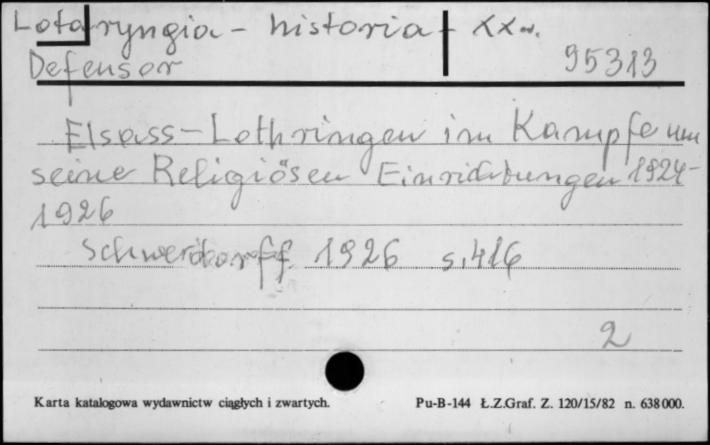 Lotaryngia - historia - XX w.
Defensor 95313
Elsass-Lothringen im Kampfe um
seine Religiösen Einrichtungen 1924-
1926
Schwerdorff 1926 s. 416
2
Karta katalogowa wydawnictw ciągłych i zwartych. Pu-B-144 Ł.Z.Graf. Z. 120/15/82 n. 638 000.